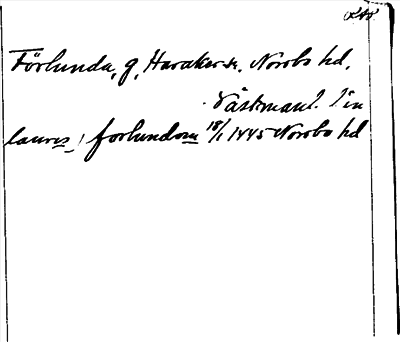 Förlunda, g, Harakers sn. Norrbo hd,
Västmanl. "in
laures, forlundom 18/1 1445 Norrbo hd